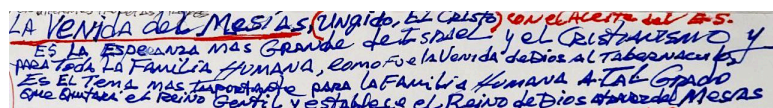 LA VENIDA del MESÍAS, (UNGIDO, EL CRISTO) CON el ACEITE del E-S.
ES LA ESPERANZA MAS GRANDE de ISRAEL y el CRISTIANISMO y
PARA TODA LA FAMILIA HUMANA, como fue la Venida de Dios AL TABERNACULO
ES EL TEMA MAS IMPORTANTE PARA LA FAMILIA HUMANA A TAL GRADO
QUE QUITARA el REINO GENTIL y establece el REINO de DIOS del MESIAS